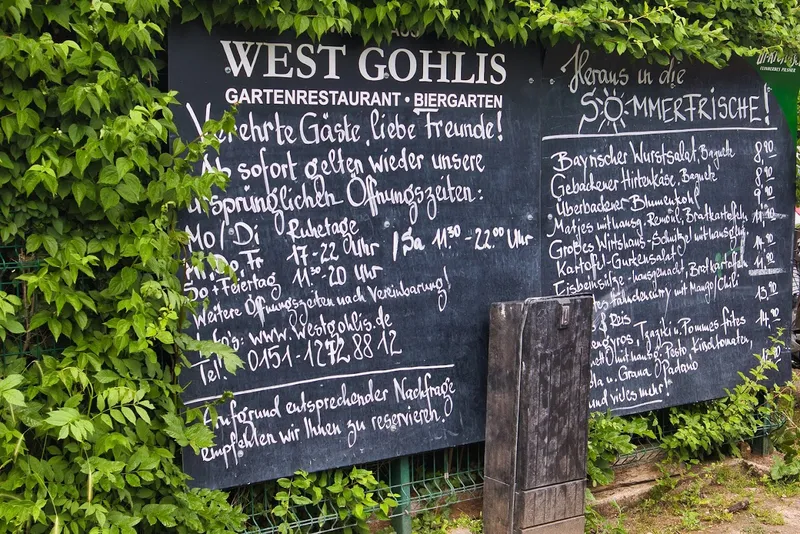 WEST GOHLIS
GARTENRESTAURANT • BIERGARTEN
Verehrte Gäste, liebe Freunde!
Ab sofort gelten wieder unsere
ursprünglichen Öffnungszeiten:
Mo/Di Ruhetage
Mi, Do, Fr 17-22 Uhr / Sa 11³⁰-22⁰⁰ Uhr
So + Feiertag 11³⁰-20 Uhr
Weitere Öffnungszeiten nach Vereinbarung!
www.westgohlis.de
Tel. 0151-1272 88 12
Aufgrund entsprechender Nachfrage
empfehlen wir Ihnen zu reservieren.
Heraus in die
SOMMERFRISCHE!
Bayrischer Wurstsalat, Baguette 8,90
Gebackener Hirtenkäse, Baguette
Überbackener Blumenkohl
Matjes mit hausg. Remoul, Bratkartoffeln
Großes Wirtshaus-Schnitzel mit hausgem.
Kartoffel-Gurkensalat
Eisbeinsülze-hausgemacht, Bratkartoffeln
Hähnchencurry mit Mango/Chili
Reis 13,90
Tzatziki u. Pommes frites 14,90
mit hausg. Pesto, Kirschtomaten,
u. Grana Padano
und vieles mehr!